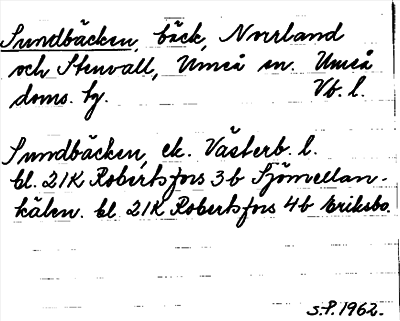 Sundbäcken, bäck, Norrland
och Stenvall, Umeå sn. Umeå
doms. hg. Vb. l.
Sundbäcken, ek. Västerb. l.
bl. 21K Robertsfors 3b Sjömellan-
kälen. bl 21K Robertsfors 4b Eriksbo.
S.P. 1962.